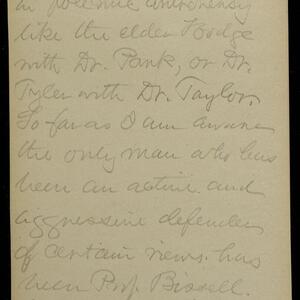 in polemic controversy
like the elder Hodge
with Dr. Park, or Dr.
Tyler with Dr. Taylor.
So far as I am aware
the only man who has
been an active and
aggressive defender
of certain views has
been Prof. Bissell.